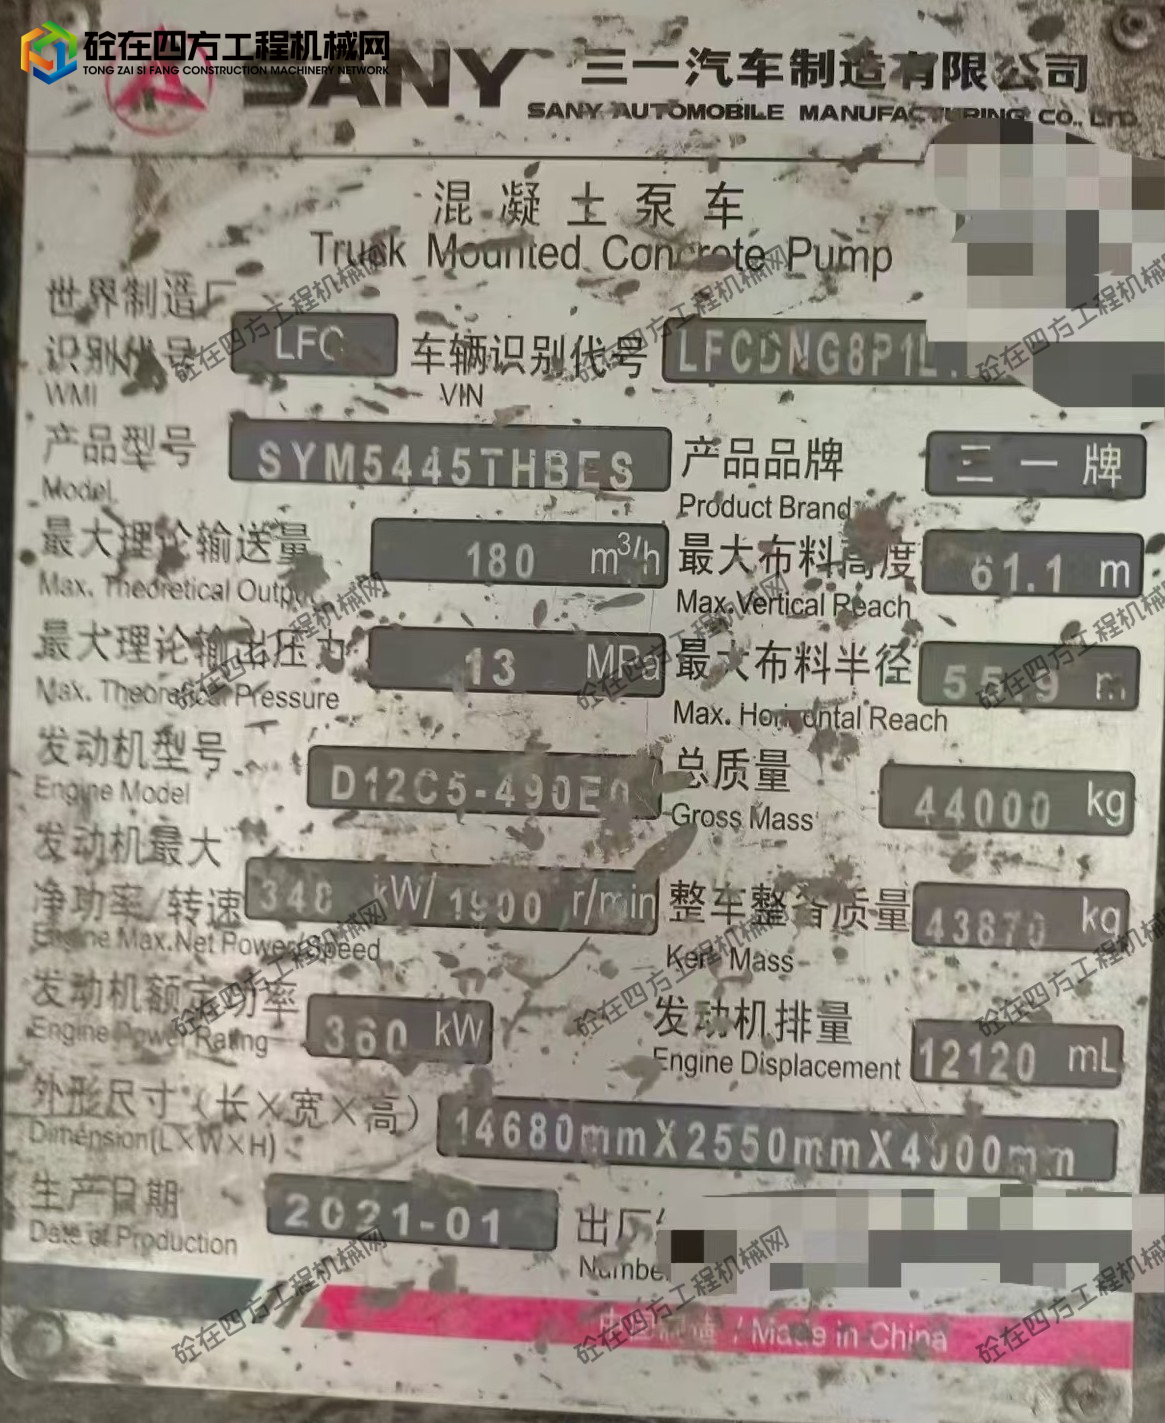 砼在四方工程机械网
TONG ZAI SI FANG CONSTRUCTION MACHINERY NETWORK
SANY 三一汽车制造有限公司
SANY AUTOMOBILE MANUFACTURING CO., LTD.
混凝土泵车
Truck Mounted Concrete Pump
世界制造厂
识别代号 LFC 车辆识别代号 LFCDNG8P1L
WMI VIN
产品型号 SYM5445THBES 产品品牌 三一牌
Model Product Brand
最大理论输送量 180 m³/h 最大布料高度 61.1 m
Max. Theoretical Output Max.Vertical Reach
最大理论输出压力 13 MPa 最大布料半径 55.9 m
Max. Theoretical Pressure Max. Horizontal Reach
发动机型号 D12C5-490E0 总质量 44000 kg
Engine Model Gross Mass
发动机最大
净功率/转速 348 kW/1900 r/min 整车整备质量 43870 kg
Engine Max.Net Power/Speed Kerb Mass
发动机额定功率 360 kW 发动机排量 12120 mL
Engine Power Rating Engine Displacement
外形尺寸(长×宽×高) 14680mmX2550mmX4000mm
Dimension(L×W×H)
生产日期 2021-01 出厂
Date of Production Number
中国制造 / Made in China
砼在四方工程机械网
砼在四方工程机械网
砼在四方工程机械网
砼在四方工程机械网
砼在四方工程机械网
砼在四方工程机械网
砼在四方工程机械网
砼在四方工程机械网
砼在四方工程机械网
砼在四方工程机械网
砼在四方工程机械网
砼在四方工程机械网